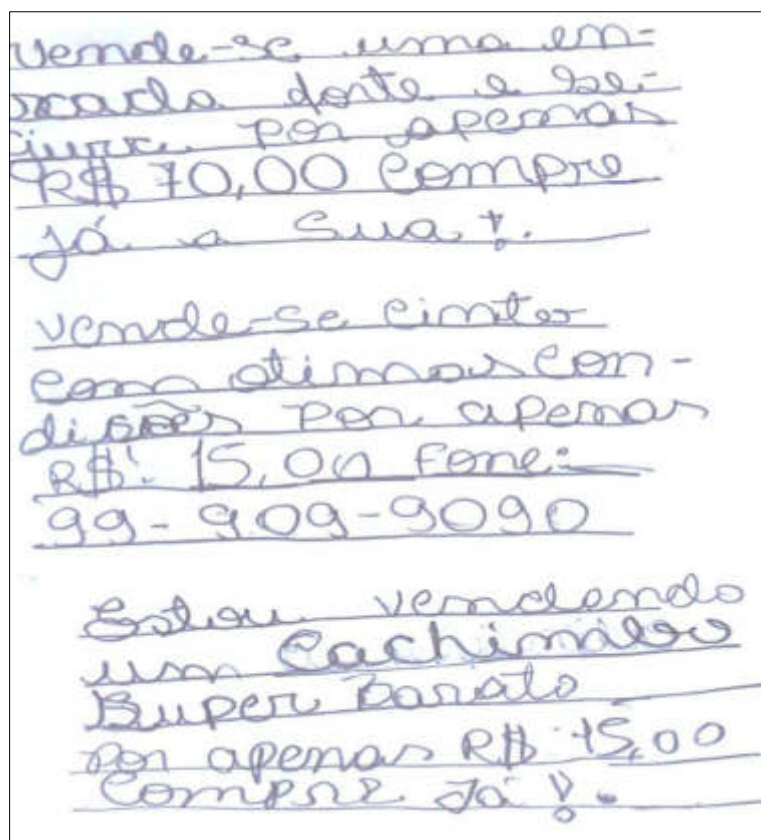 Vende-se uma en-
xada forte e se-
por apenas
R$ 70,00 Compre
já a Sua!.
Vende-se cinto
com otimas con-
disões por apenas
R$: 15,00 Fone:
99-909-9090
Estou vendendo
um Cachimbo
Super barato
por apenas R$ 15,00
Compre Já!.